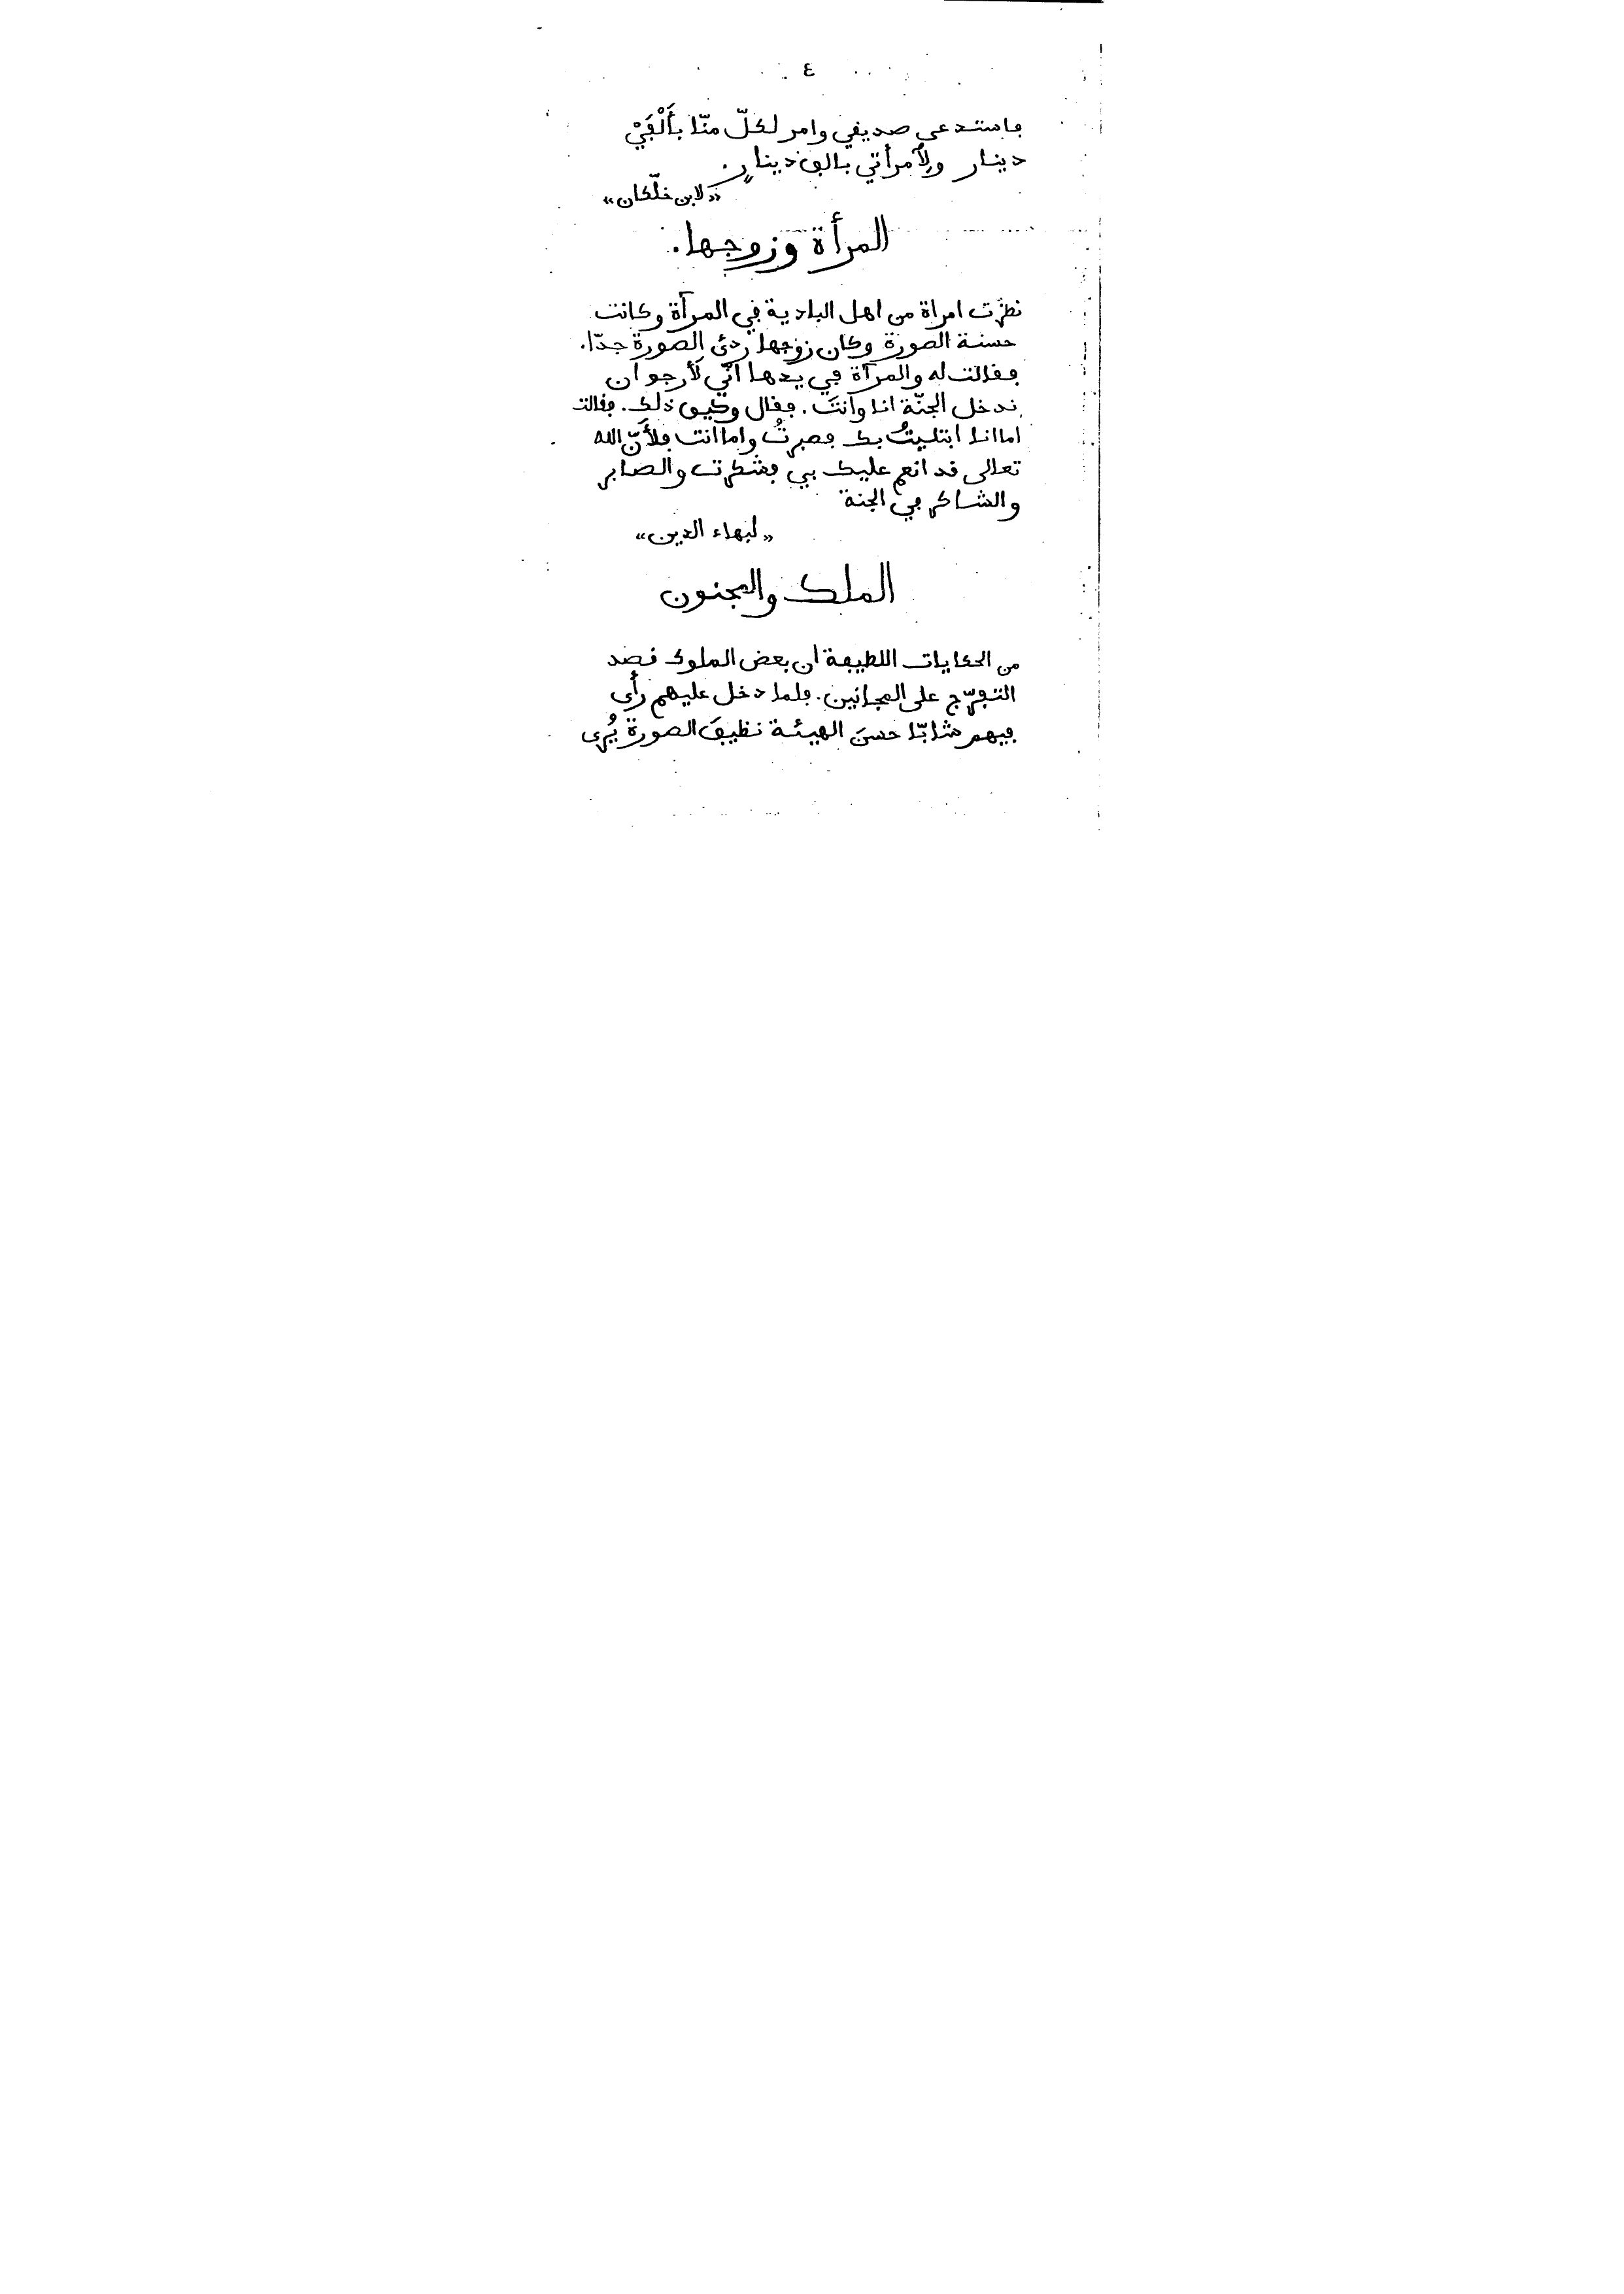 ٤
فاستدعى صديقي وامر لكلّ منّا بأَلْفَيْ
دينار ولِأمرأتي بالف دينارٍ.
«لابن خلّكان»
المرأة وزوجها.
نظرت امراة من اهل البادية في المرآة وكانت
حسنة الصورة وكان زوجها ردئ الصورة جدّا.
فقالت له والمرآة في يدها انّي لَأرجو ان
ندخل الجنّة انا وانتَ. فقال وكيف ذلك. فقالت
اما انا ابتليتُ بك فصبرتُ واما انت فلأَنّ الله
تعالى قد انعم عليك بي فشكرت والصابر
والشاكر في الجنة
«لبهاء الدين»
الملك والمجنون
من الحكايات اللطيفة ان بعض الملوك قصد
التفرّج على المجانين. فلما دخل عليهم رأى
فيهم شابّا حسنَ الهيئة نظيفَ الصورة يُرى